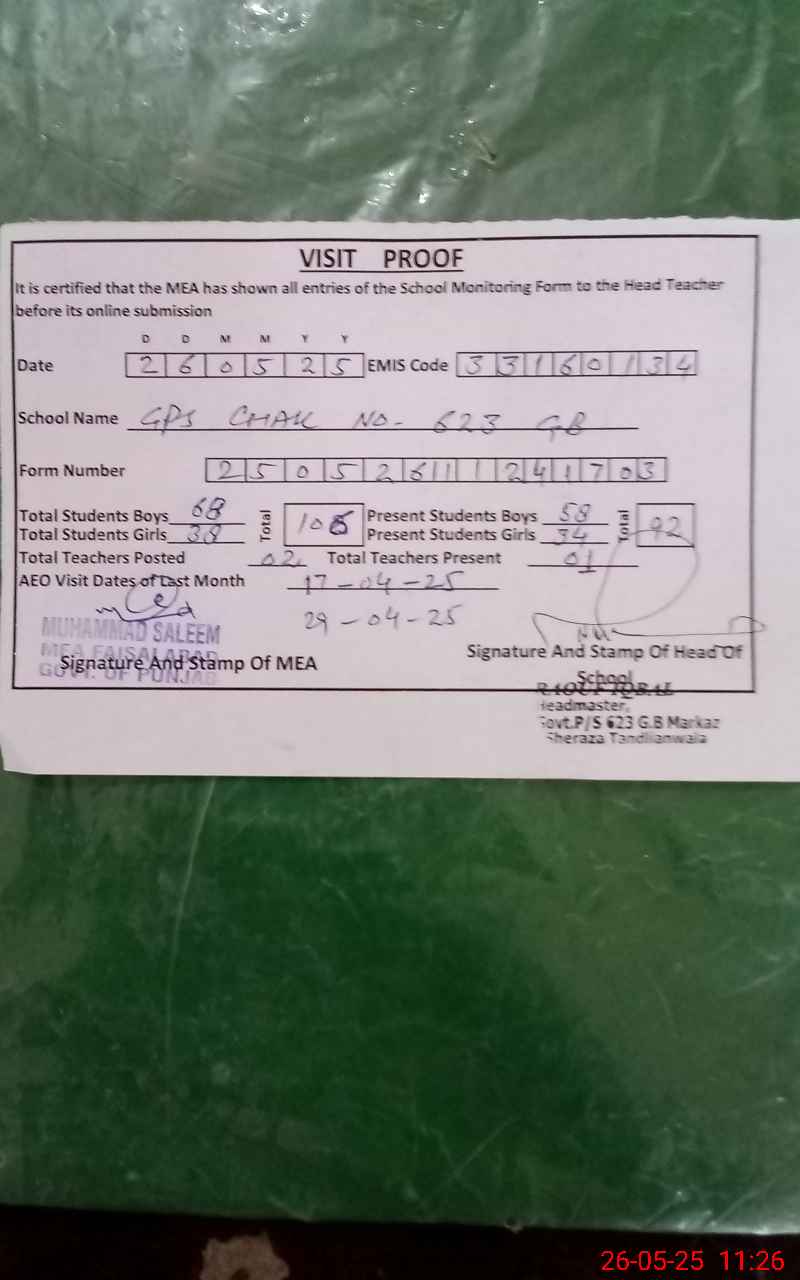 VISIT PROOF
It is certified that the MEA has shown all entries of the School Monitoring Form to the Head Teacher
before its online submission
D D M M Y Y
Date 2 6 0 5 2 5 EMIS Code 3 3 1 6 0 1 3 4
School Name GPS CHAK NO- 623 GB
Form Number 2 5 0 5 2 6 1 1 1 2 4 1 7 0 3
Total Students Boys 68 Total 106 Present Students Boys 58 Total 92
Total Students Girls 38 Present Students Girls 34
Total Teachers Posted 02 Total Teachers Present 01
AEO Visit Dates of Last Month 17-04-25
29-04-25
MUHAMMAD SALEEM
MEA FAISALABAD
GOVT. OF PUNJAB
Signature And Stamp Of MEA
Signature And Stamp Of Head Of
School
RAOUF IQBAL
Headmaster,
Govt.P/S 623 G.B Markaz
Sheraza Tandlianwala
26-05-25 11:26